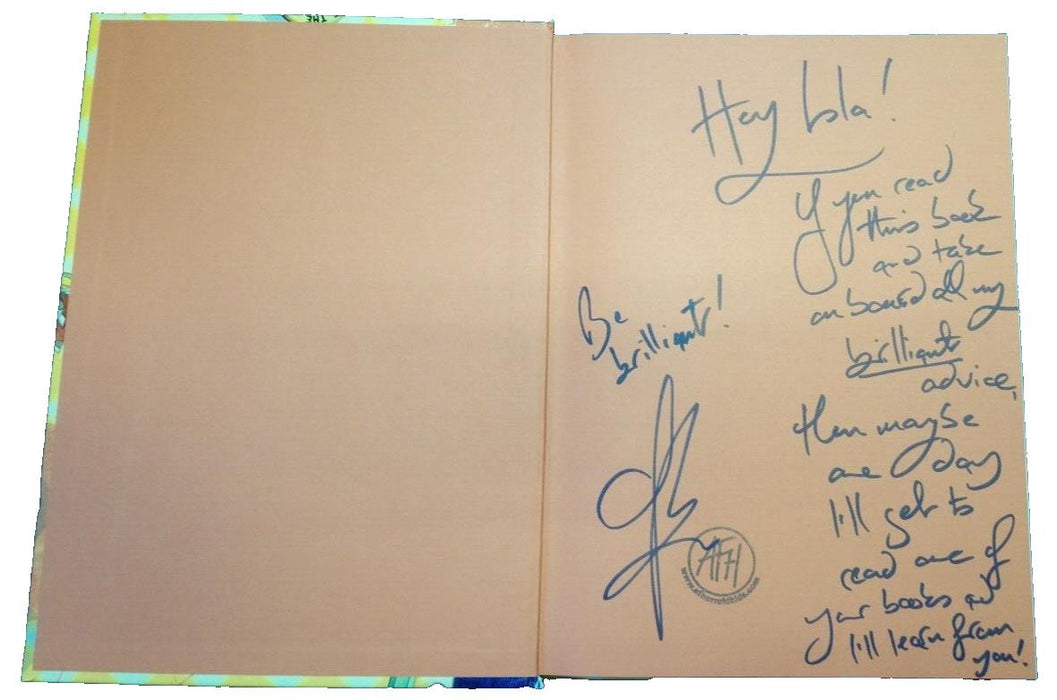 Hey Isla!
If you read
this book
and take
on board all my
brilliant
advice,
then maybe
one day
I'll get to
read one of
your books and
I'll learn from
you!
Be
brilliant!
AFH
THE